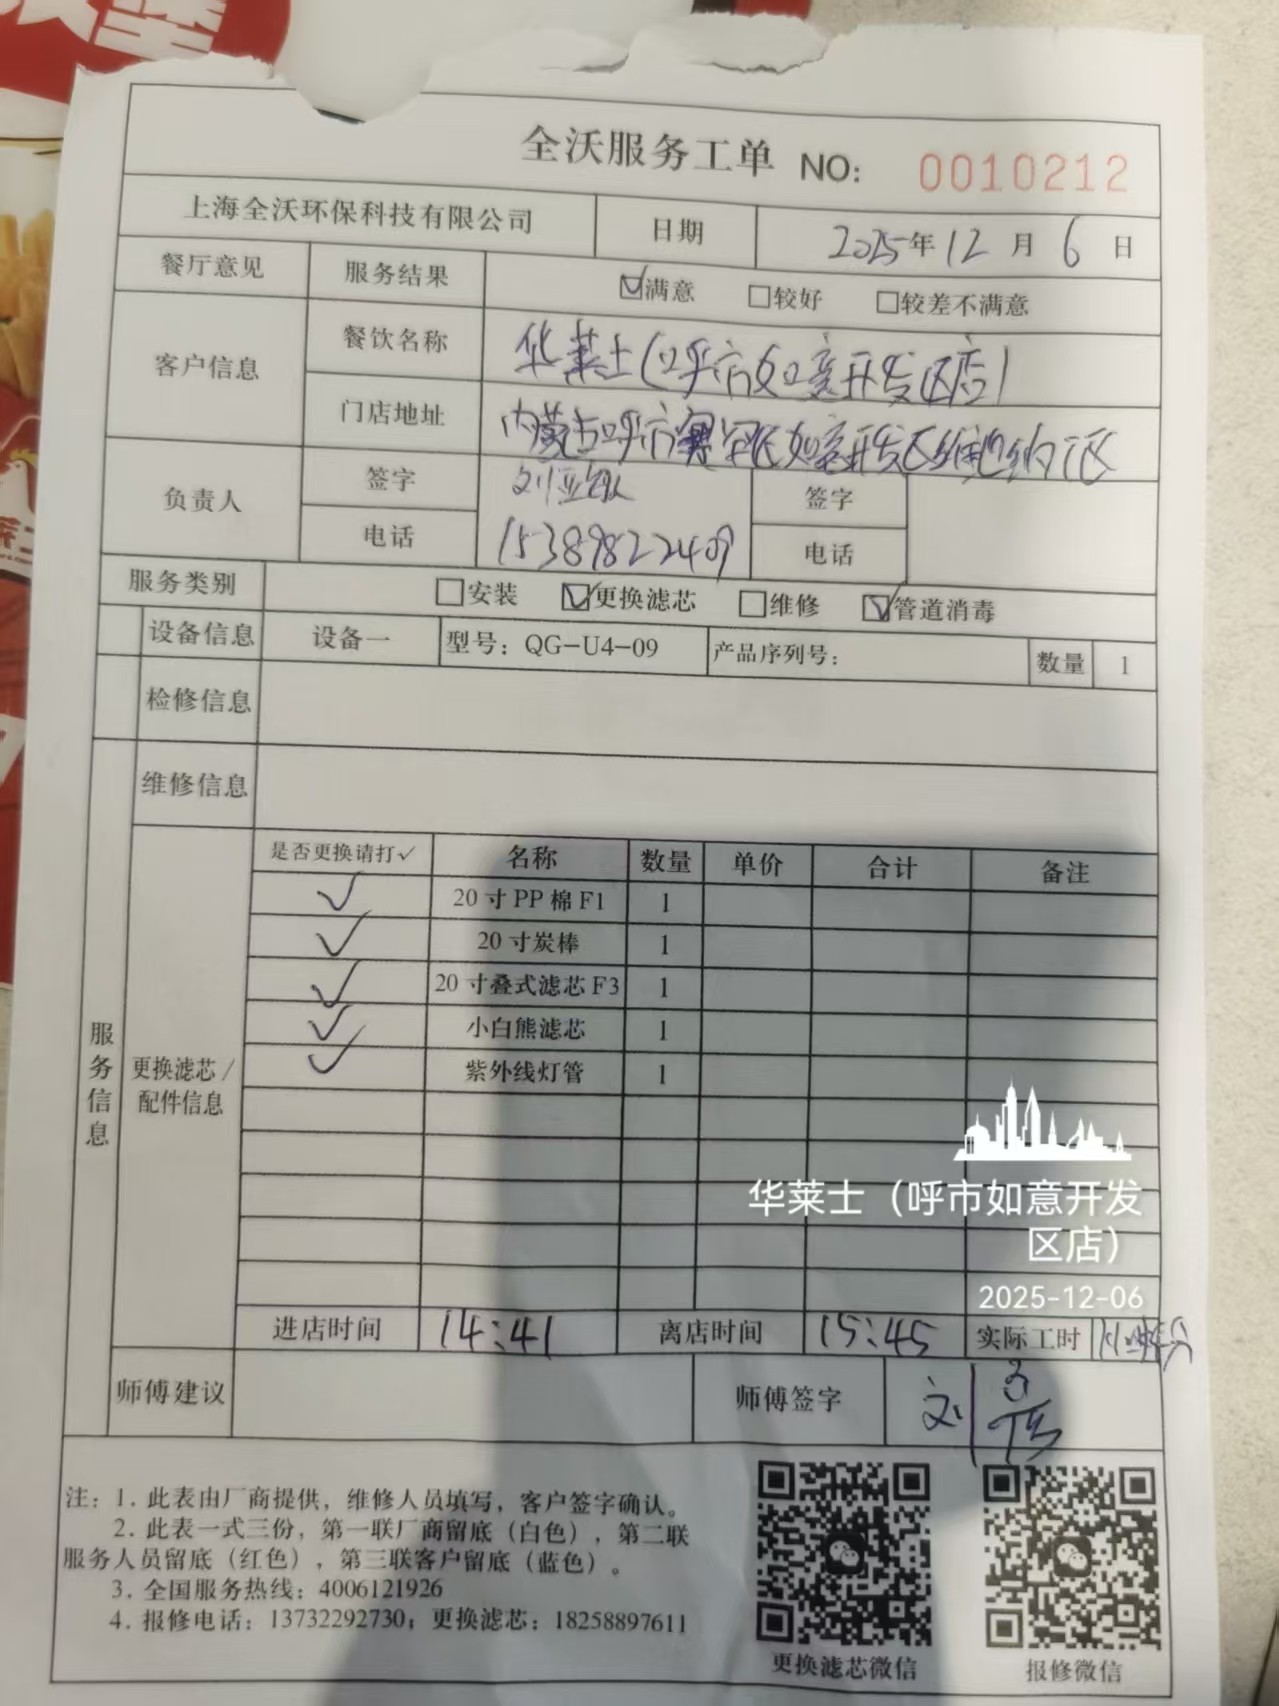 全沃服务工单 NO: 0010212
上海全沃环保科技有限公司 日期 2025年12月6日
餐厅意见 服务结果 ☑满意 □较好 □较差不满意
客户信息 餐饮名称 华莱士(呼市如意开发区店)
门店地址 内蒙古呼市赛罕区如意开发区维也纳
负责人 签字 刘亚 签字
电话 15389822409 电话
服务类别 □安装 ☑更换滤芯 □维修 ☑管道消毒
设备信息 设备一 型号: QG-U4-09 产品序列号: 数量 1
检修信息
维修信息
服务信息
更换滤芯/配件信息
是否更换请打✓ 名称 数量 单价 合计 备注
✓ 20寸PP棉F1 1
✓ 20寸炭棒 1
✓ 20寸叠式滤芯F3 1
✓ 小白熊滤芯 1
✓ 紫外线灯管 1
华莱士（呼市如意开发
区店）
2025-12-06
进店时间 14:41 离店时间 15:45 实际工时
师傅建议 师傅签字 刘
注: 1. 此表由厂商提供，维修人员填写，客户签字确认。
2. 此表一式三份，第一联厂商留底（白色），第二联
服务人员留底（红色），第三联客户留底（蓝色）。
3. 全国服务热线: 4006121926
4. 报修电话: 13732292730; 更换滤芯: 18258897611
更换滤芯微信 报修微信